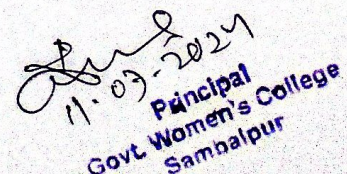 11.07.2024
Principal
Govt. Women's College
Sambalpur